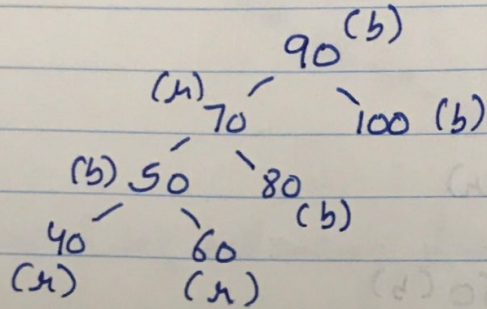 90 (b)
(r) 70 100 (b)
(b) 50 80 (b)
40 (r) 60 (r)